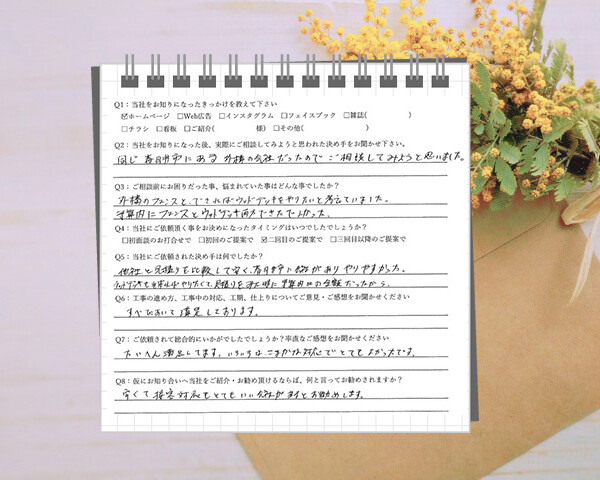 Q1：当社をお知りになったきっかけを教えて下さい
☑ホームページ　□Web広告　□インスタグラム　□フェイスブック　□雑誌(　　　　)
□チラシ　□看板　□ご紹介(　　　　様)　□その他(　　　　)
Q2：当社をお知りになった後、実際にご相談してみようと思われた決め手をお聞かせ下さい。
同じ春日井市にある外構の会社だったのでご相談してみようと思いました。
Q3：ご相談前にお困りだった事、悩まれていた事はどんな事でしたか？
外構のフェンスと、できればウッドデッキをやりたいと考えていました。
予算内にフェンスとウッドデッキ両方できたでよかった。
Q4：当社にご依頼頂く事をお決めになったタイミングはいつでしたでしょうか？
□初面談のお打合せで　□初回のご提案で　☑二回目のご提案で　□三回目以降のご提案で
Q5：当社にご依頼された決め手は何でしたか？
他社と見積りを比較して安く、春日井市に会社がありやりやすかった。
ウッドデッキも やりたくて、見積りを 時に予算内の金額だったから。
Q6：工事の進め方、工事中の対応、工期、仕上りについてご意見・ご感想をお聞かせください
すべてにおいて満足しております。
Q7：ご依頼されて総合的にいかがでしたでしょうか？率直なご感想をお聞かせください
たいへん満足してます。いろいろこまかな対応でとてもよかったです。
Q8：仮にお知り合いへ当社をご紹介・お勧め頂けるならば、何と言ってお勧めされますか？
安くて接客対応もとてもいい会社がありますとお勧めします。